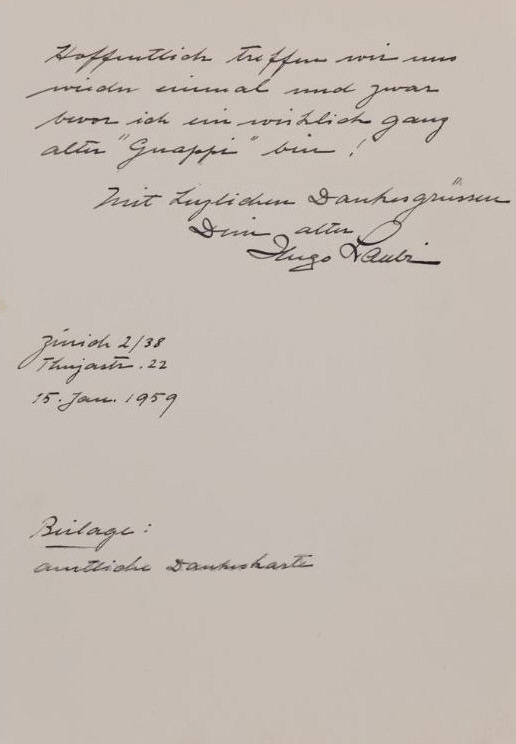 Hoffentlich treffen wir uns
wieder einmal und zwar
bevor ich ein wirklich ganz
alter "Gnappi" bin!
Mit herzlichen Dankesgrüssen
Dein alter
Hugo Laubi
Zürich 2/38
Thujastr. 22
15. Jan. 1959
Beilage:
amtliche Dankeskarte